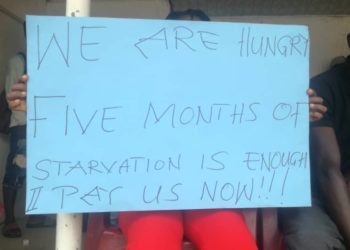 WE ARE HUNGRY
FIVE MONTHS OF
STARVATION IS ENOUGH
PAY US NOW!!!